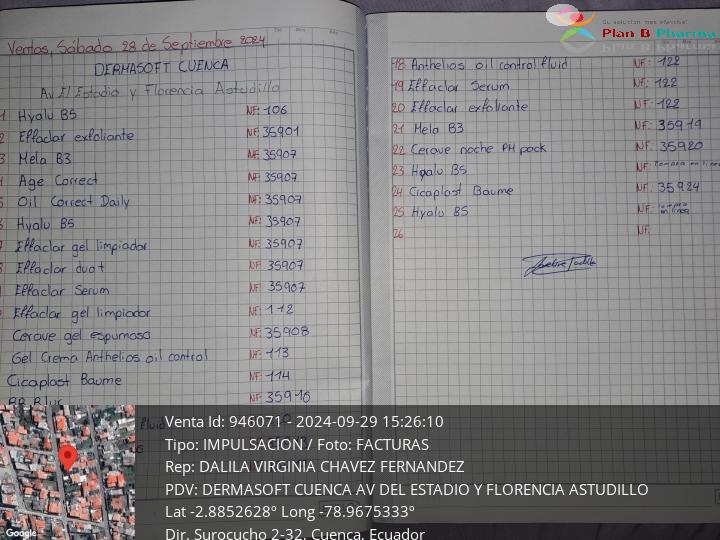 Ventas, Sábado 28 de Septiembre 2024
DERMASOFT CUENCA
Av El Estadio y Florencia Astudillo
1 Hyalu B5 NF: 106
2 Effaclar exfoliante NF: 35901
3 Mela B3 NF: 35907
Age Correct NF: 35907
5 Oil Correct Daily NF: 35907
Hyalu B5 NF: 35907
Effaclar gel limpiador NF: 35907
Effaclar duo+ NF: 35907
Effaclar Serum NF: 35907
Effaclar gel limpiador NF: 112
Cerave gel espumoso NF: 35908
Gel Crema Anthelios oil control NF: 113
Cicaplast Baume NF: 114
BB Blur NF: 35916
fluid
18 Anthelios oil control fluid NF: 122
19 Effaclar Serum NF: 122
20 Effaclar exfoliante NF: 122
21 Mela B3 NF: 35919
22 Cerave noche PM pack NF: 35920
23 Hyalu B5 NF: compra en linea
24 Cicaplast Baume NF: 35924
25 Hyalu B5 NF: compra en linea
26 NF:
Su solución más efectiva!
Plan B Pharma
Venta Id: 946071 - 2024-09-29 15:26:10
Tipo: IMPULSACION / Foto: FACTURAS
Rep: DALILA VIRGINIA CHAVEZ FERNANDEZ
PDV: DERMASOFT CUENCA AV DEL ESTADIO Y FLORENCIA ASTUDILLO
Lat -2.8852628º Long -78.9675333º
Dir. Surocucho 2-32, Cuenca, Ecuador
Google